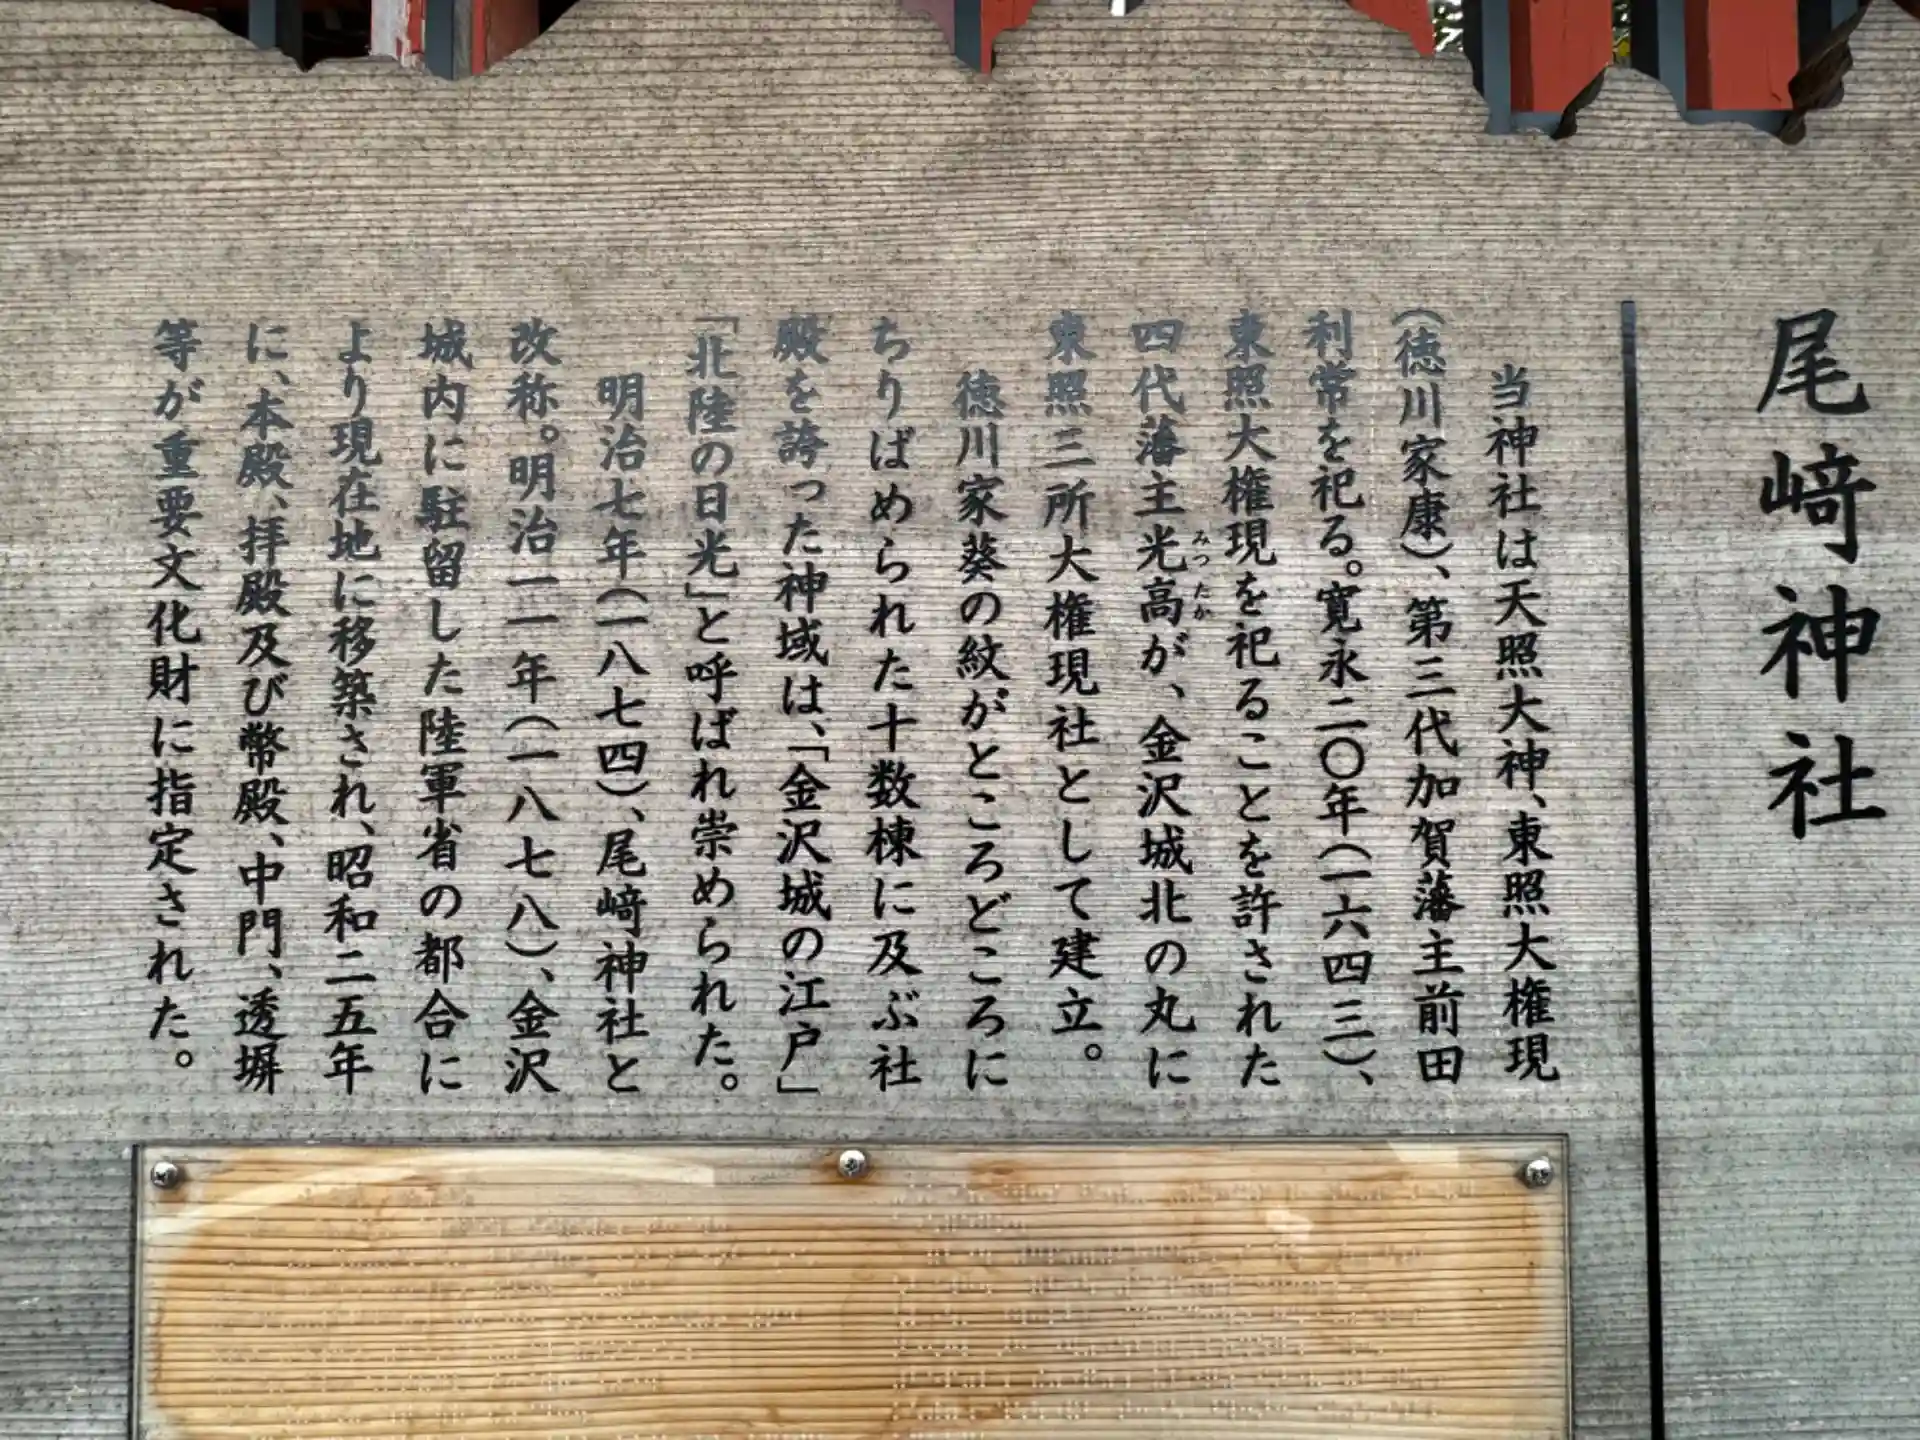 尾﨑神社
当神社は天照大神、東照大権現
(徳川家康)、第三代加賀藩主前田
利常を祀る。寛永二〇年(一六四三)、
東照大権現を祀ることを許された
四代藩主光高が、金沢城北の丸に
みつたか
東照三所大権現社として建立。
徳川家葵の紋がところどころに
ちりばめられた十数棟に及ぶ社
殿を誇った神域は、「金沢城の江戸」
「北陸の日光」と呼ばれ崇められた。
明治七年(一八七四)、尾﨑神社と
改称。明治一一年(一八七八)、金沢
城内に駐留した陸軍省の都合に
より現在地に移築され、昭和二五年
に、本殿、拝殿及び幣殿、中門、透塀
等が重要文化財に指定された。